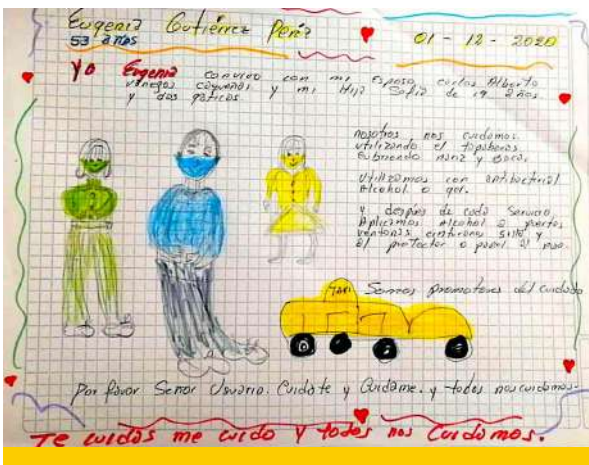 Eugenia Gutiérrez Peña
53 años
01 - 12 - 2020
Yo Eugenia convivo con mi Esposo carlos Alberto
y mi Hija Sofia de 19 años.
y dos gaticos
nosotros nos cuidamos.
utilizando el tapabocas
cubriendo nariz y Boca.
Utilizamos con antibacterial
Alcohol o gel.
y despúes de cada Servicio
Aplicamos Alcohol a puertas
ventanas cinturones silla y
el protector o panel
TAXI
Somos promotores del cuidado
Por favor Señor Usuario. Cuidate y Cuidame. y todos nos cuidamos.
Te cuidas me cuido y todos nos Cuidamos.